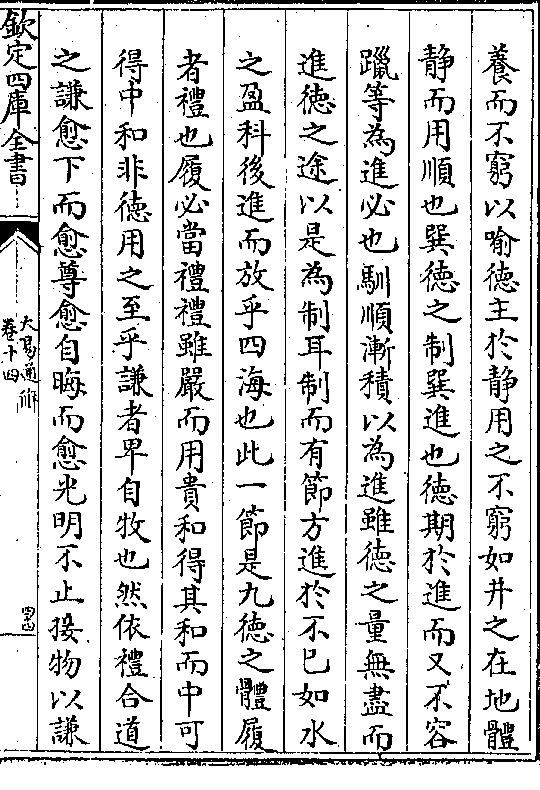 養而不窮以喻德主於静用之不窮如井之在地體
静而用順也巽德之制巽進也德期於進而又不容
躐等為進必也馴順漸積以為進雖德之量無盡而
進德之途以是為制耳制而有節方進於不已如水
之盈科後進而放乎四海也此一節是九德之體履
者禮也履必當禮禮雖嚴而用貴和得其和而中可
得中和非德用之至乎謙者卑自牧也然依禮合道
之謙愈下而愈尊愈自晦而愈光明不止接物以謙
欽定四庫全書
大易通解
卷十四